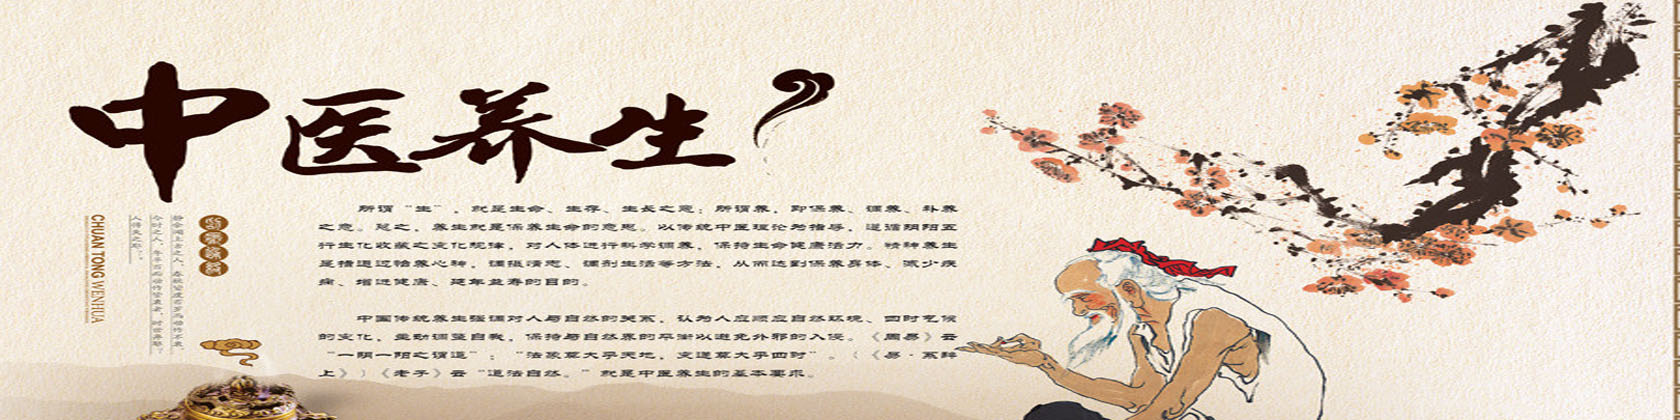 中医养生
所谓“生”，就是生命、生存、生长之意；所谓养，即保养、调养、补养
之意。总之，养生就是保养生命的意思。以传统中医理论为指导，遵循阴阳五
行生化收藏之变化规律，对人体进行科学调养，保持生命健康活力。精神养生
是指通过怡养心神，调摄情志、调剂生活等方法，从而达到保养身体、减少疾
病、增进健康、延年益寿的目的。
中国传统养生强调对人与自然的关系，认为人应顺应自然环境、四时气候
的变化，主动调整自我，保持与自然界的平衡以避免外邪的入侵。《周易》云
“一阴一阳之谓道”；“法象莫大乎天地，变通莫大乎四时”。（《易·系辞
上》）《老子》云“道法自然。”就是中医养生的基本要求。
CHUAN TONG WENHUA